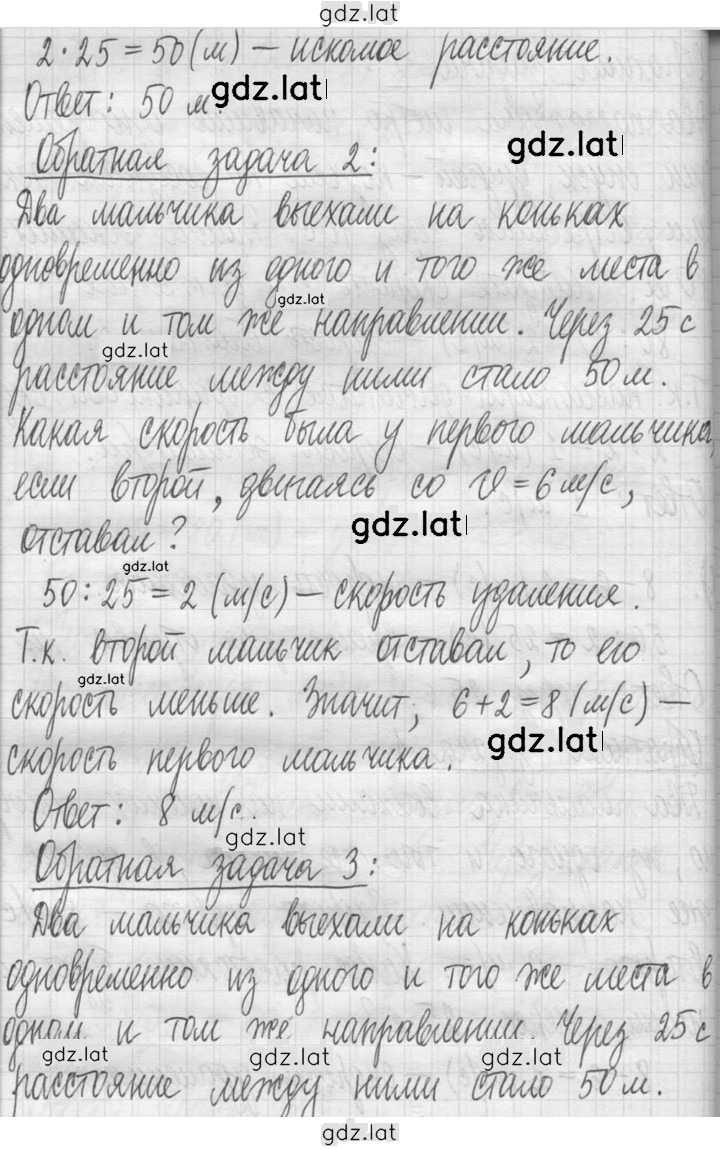 gdz.lat
2·25=50(м) – искомое расстояние.
Ответ: 50 м.
gdz.lat
Обратная задача 2:
gdz.lat
Два мальчика выехали на коньках
одновременно из одного и того же места в
gdz.lat
одном и том же направлении. Через 25с
gdz.lat
расстояние между ними стало 50м.
Какая скорость была у первого мальчика,
если второй, двигаясь со v=6м/с,
gdz.lat
отставал?
gdz.lat
50:25=2(м/с) – скорость удаления.
Т.к. второй мальчик отставал, то его
gdz.lat
скорость меньше. Значит, 6+2=8(м/с) –
gdz.lat
скорость первого мальчика.
Ответ: 8 м/с.
gdz.lat
Обратная задача 3:
Два мальчика выехали на коньках
одновременно из одного и того же места в
одном и том же направлении. Через 25с
gdz.lat gdz.lat gdz.lat
расстояние между ними стало 50м.
gdz.lat